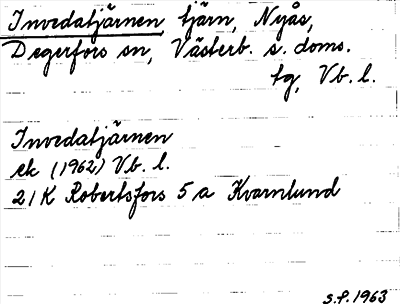 Invedatjärnen, tjärn, Nyås,
Degerfors sn, Västerb. s. doms.
tg, Vb. l.
Invedatjärnen
ek (1962) Vb. l.
21 K Robertsfors 5 a Kvarnlund
S.P. 1963